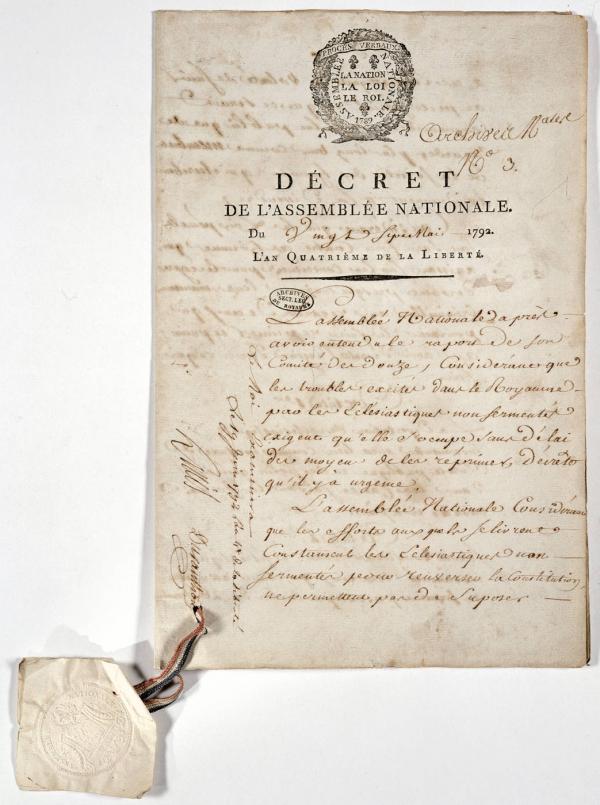 PROCÈS VERBAUX
ASSEMBLÉE NATIONALE.
LA NATION
LA LOI
LE ROI.
1789
Archives Nales
No 3.
DÉCRET
DE L'ASSEMBLÉE NATIONALE.
Du Vingt Sept Mai 1792.
L'AN QUATRIÈME DE LA LIBERTÉ.
ARCHIVES
SECT. LEG
DU ROYAUME
L'assemblée Nationale après
avoir entendu le raport de son
Comité des douze, Considérant que
les troubles excités dans le Royaume
par les Eclésiastiques non sermentés
exigent qu'elle s'ocupe sans délai
des moyen de les réprimer, décrete
qu'il y a urgence.
L'assemblée Nationale Considérant
que les efforts auxquels se livrent
Constament les Eclésiastiques non
sermentés pour renverser la Constitution,
ne permettent pas de suposer
Le Roi Examinera
le 19 Juin 1792 l'an 4e de la liberté
Louis
Duranthon